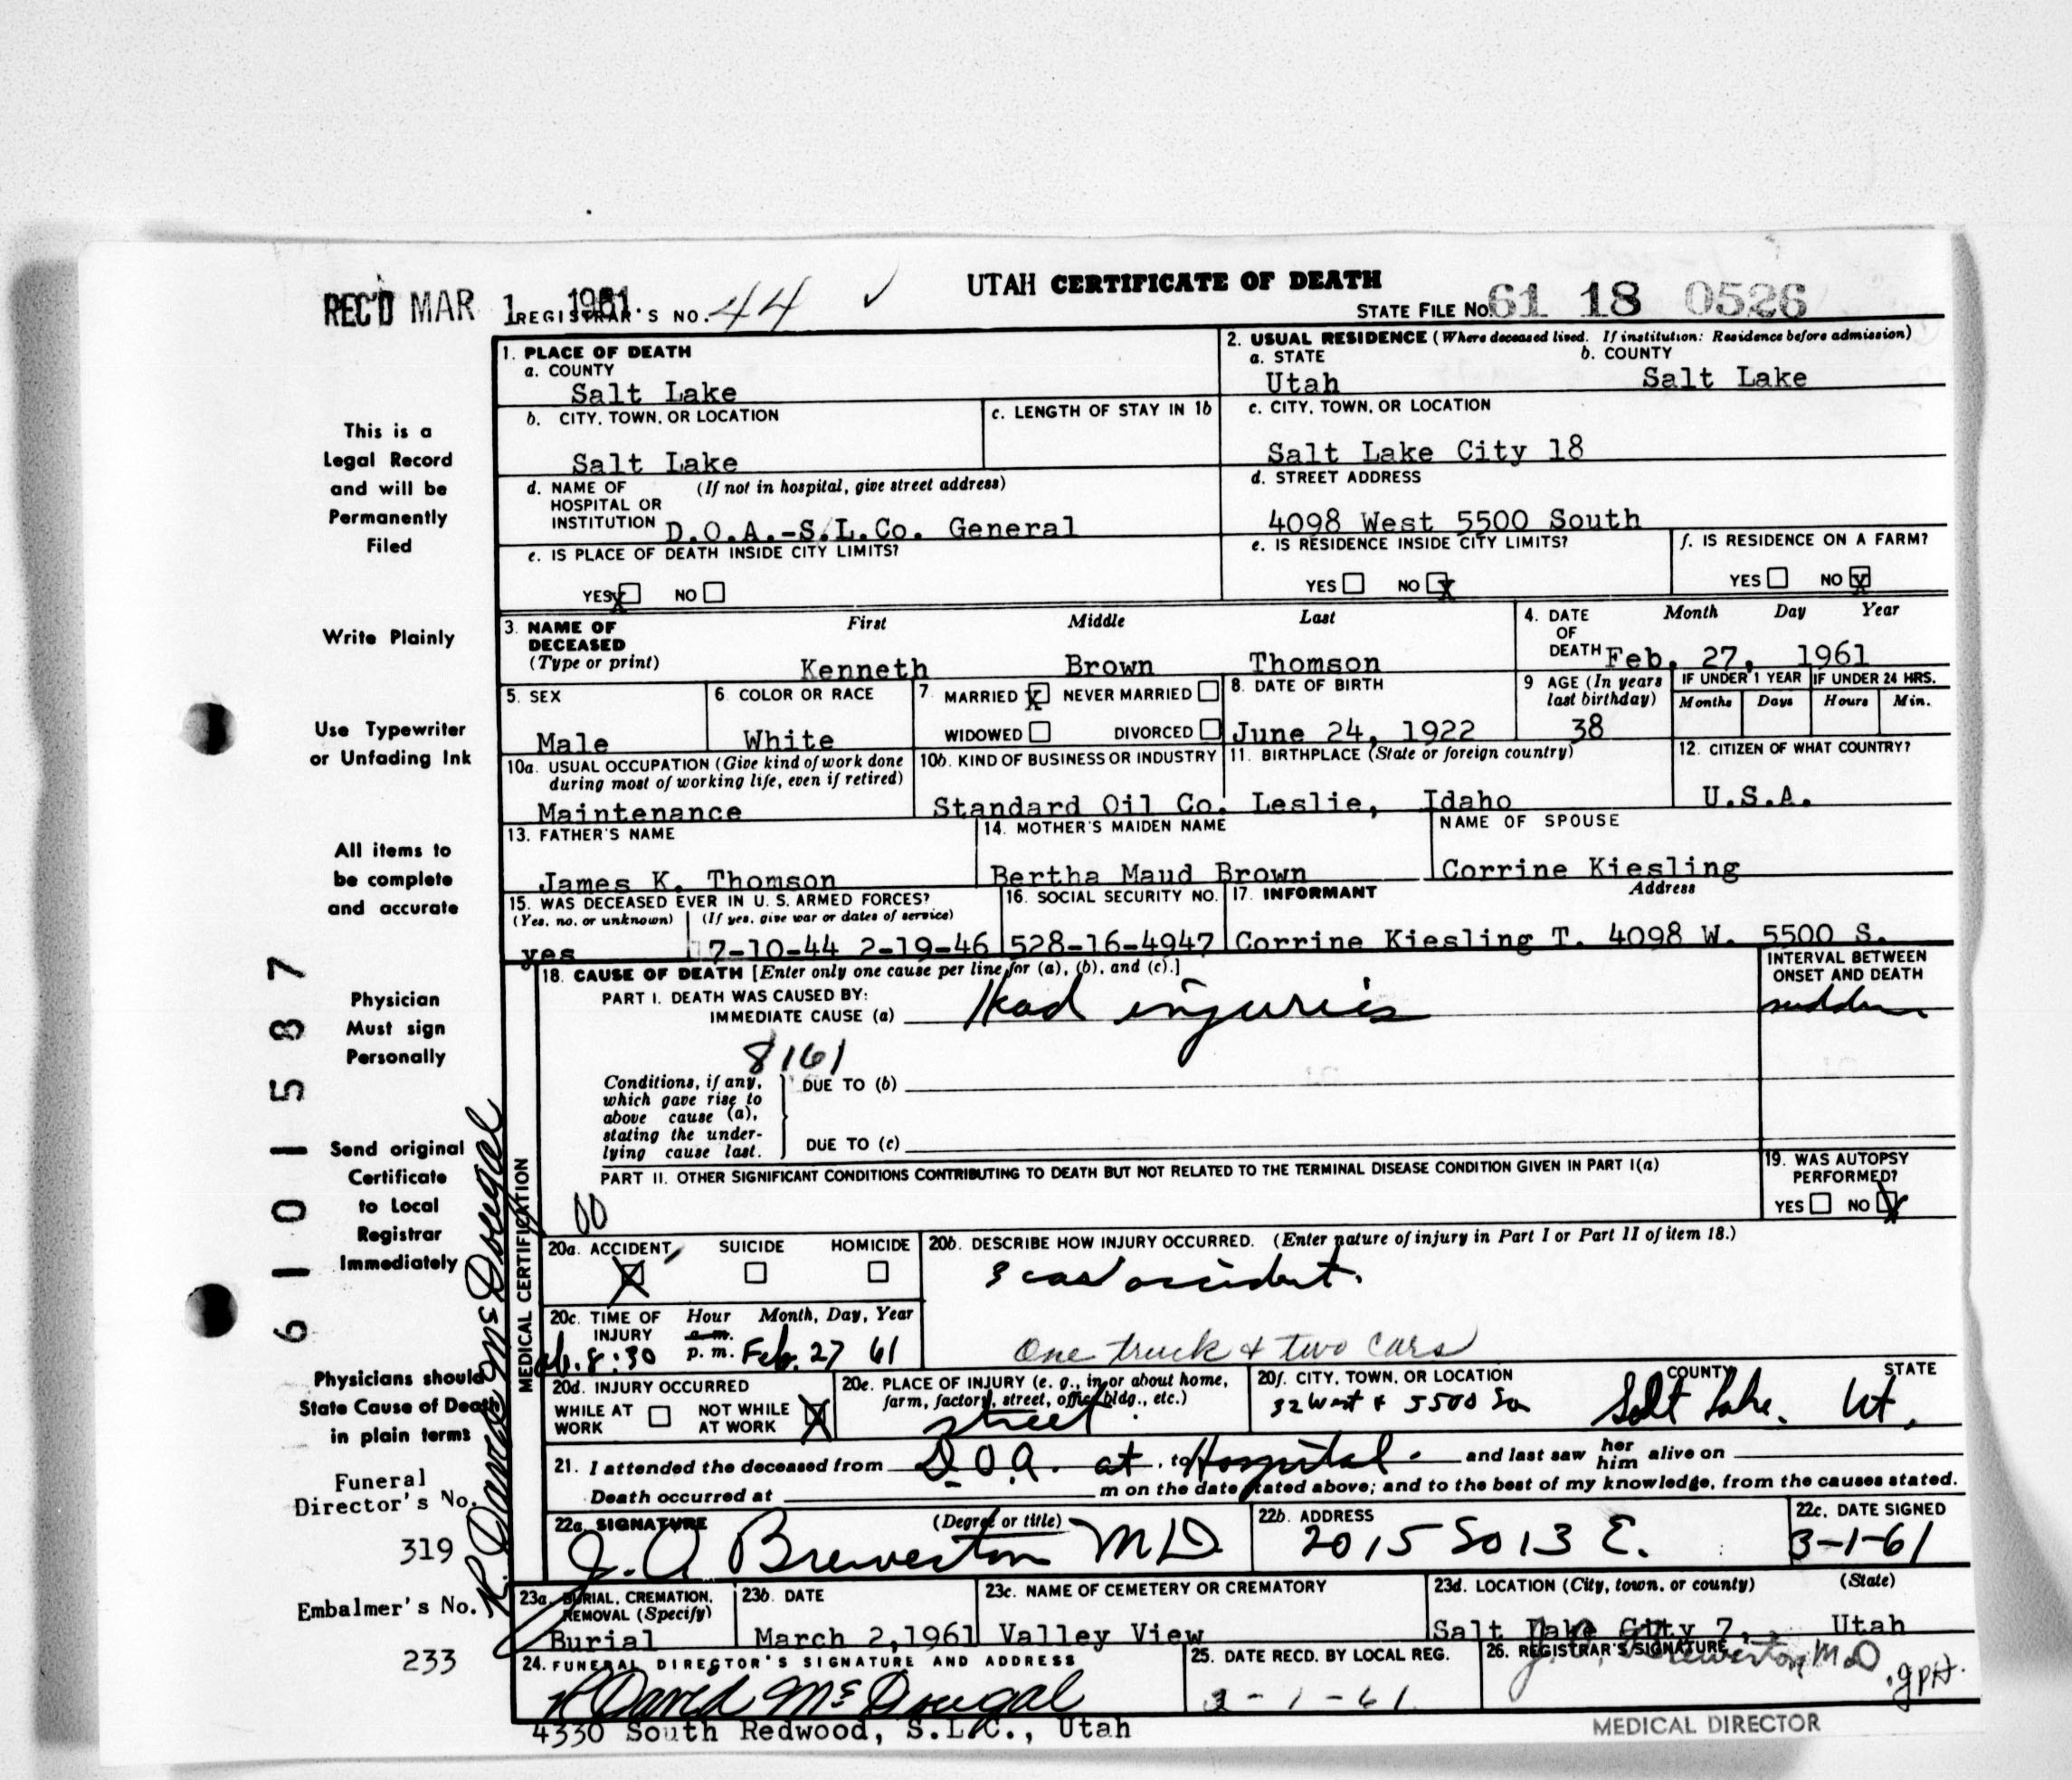 UTAH CERTIFICATE OF DEATH
REC'D MAR 1 1961 REGISTRAR'S NO. 44 STATE FILE NO. 61 18 0526
1. PLACE OF DEATH
a. COUNTY
Salt Lake
b. CITY, TOWN, OR LOCATION
Salt Lake
c. LENGTH OF STAY IN 1b
d. NAME OF HOSPITAL OR INSTITUTION (If not in hospital, give street address)
D.O.A.-S.L.Co. General
e. IS PLACE OF DEATH INSIDE CITY LIMITS?
YES X NO
2. USUAL RESIDENCE (Where deceased lived. If institution: Residence before admission)
a. STATE
Utah
b. COUNTY
Salt Lake
c. CITY, TOWN, OR LOCATION
Salt Lake City 18
d. STREET ADDRESS
4098 West 5500 South
e. IS RESIDENCE INSIDE CITY LIMITS?
YES NO X
f. IS RESIDENCE ON A FARM?
YES NO X
3. NAME OF DECEASED (Type or print)
First Middle Last
Kenneth Brown Thomson
4. DATE OF DEATH Month Day Year
Feb. 27, 1961
5. SEX
Male
6. COLOR OR RACE
White
7. MARRIED X NEVER MARRIED
WIDOWED DIVORCED
8. DATE OF BIRTH
June 24, 1922
9 AGE (In years last birthday)
38
IF UNDER 1 YEAR
Months Days
IF UNDER 24 HRS.
Hours Min.
10a. USUAL OCCUPATION (Give kind of work done during most of working life, even if retired)
Maintenance
10b. KIND OF BUSINESS OR INDUSTRY
Standard Oil Co.
11. BIRTHPLACE (State or foreign country)
Leslie, Idaho
12. CITIZEN OF WHAT COUNTRY?
U.S.A.
13. FATHER'S NAME
James K. Thomson
14. MOTHER'S MAIDEN NAME
Bertha Maud Brown
NAME OF SPOUSE
Corrine Kiesling
15. WAS DECEASED EVER IN U.S. ARMED FORCES?
(Yes, no. or unknown) (If yes, give war or dates of service)
yes 7-10-44 2-19-46
16. SOCIAL SECURITY NO.
528-16-4947
17. INFORMANT Address
Corrine Kiesling T. 4098 W. 5500 S.
18. CAUSE OF DEATH [Enter only one cause per line for (a), (b), and (c).]
PART I. DEATH WAS CAUSED BY:
IMMEDIATE CAUSE (a) Head injuries
INTERVAL BETWEEN ONSET AND DEATH
sudden
8161
Conditions, if any, which gave rise to above cause (a), stating the underlying cause last.
DUE TO (b)
DUE TO (c)
PART II. OTHER SIGNIFICANT CONDITIONS CONTRIBUTING TO DEATH BUT NOT RELATED TO THE TERMINAL DISEASE CONDITION GIVEN IN PART I(a)
00
19. WAS AUTOPSY PERFORMED?
YES NO X
20a. ACCIDENT SUICIDE HOMICIDE
X
20b. DESCRIBE HOW INJURY OCCURRED. (Enter nature of injury in Part I or Part II of item 18.)
3 car accident.
One truck & two cars
20c. TIME OF INJURY Hour Month, Day, Year
a.m.
ab. 8:30 p.m. Feb. 27 61
20d. INJURY OCCURRED
WHILE AT WORK NOT WHILE AT WORK X
20e. PLACE OF INJURY (e. g., in or about home, farm, factory, street, office bldg., etc.)
street
20f. CITY, TOWN, OR LOCATION COUNTY STATE
32 West & 5500 So Salt Lake. Ut.
21. I attended the deceased from D.O.A. at, to Hospital. and last saw her him alive on
Death occurred at m on the date stated above; and to the best of my knowledge, from the causes stated.
22a. SIGNATURE (Degree or title)
J. A Brewerton MD.
22b. ADDRESS
2015 So 13 E.
22c. DATE SIGNED
3-1-61
23a. BURIAL, CREMATION, REMOVAL (Specify)
Burial
23b. DATE
March 2,1961
23c. NAME OF CEMETERY OR CREMATORY
Valley View
23d. LOCATION (City, town, or county) (State)
Salt Lake City 7, Utah
24. FUNERAL DIRECTOR'S SIGNATURE AND ADDRESS
R David McDougal
4330 South Redwood, S.L.C., Utah
25. DATE RECD. BY LOCAL REG.
3-1-61
26. REGISTRAR'S SIGNATURE
Brewerton, M.D. gpH.
MEDICAL DIRECTOR
MEDICAL CERTIFICATION
This is a
Legal Record
and will be
Permanently
Filed
Write Plainly
Use Typewriter
or Unfading Ink
All items to
be complete
and accurate
Physician
Must sign
Personally
Send original
Certificate
to Local
Registrar
Immediately
Physicians should
State Cause of Death
in plain terms
Funeral
Director's No.
319
Embalmer's No.
233
R. David McDougal
6101587